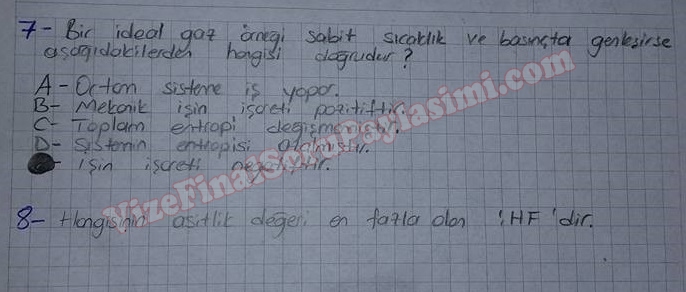 7- Bir ideal gaz örneği sabit sıcaklık ve basınçta genleşirse
aşağıdakilerden hangisi doğrudur?
A- Ortam sisteme iş yapar.
B- Mekanik işin işareti pozitiftir.
C- Toplam entropi değişmemiştir.
D- Sistemin entropisi azalmıştır.
- Işin işareti negatiftir.
8- Hangisinin asitlik değeri en fazla olan 'HF' dir.
VizeFinalSoruPaylasimi.com